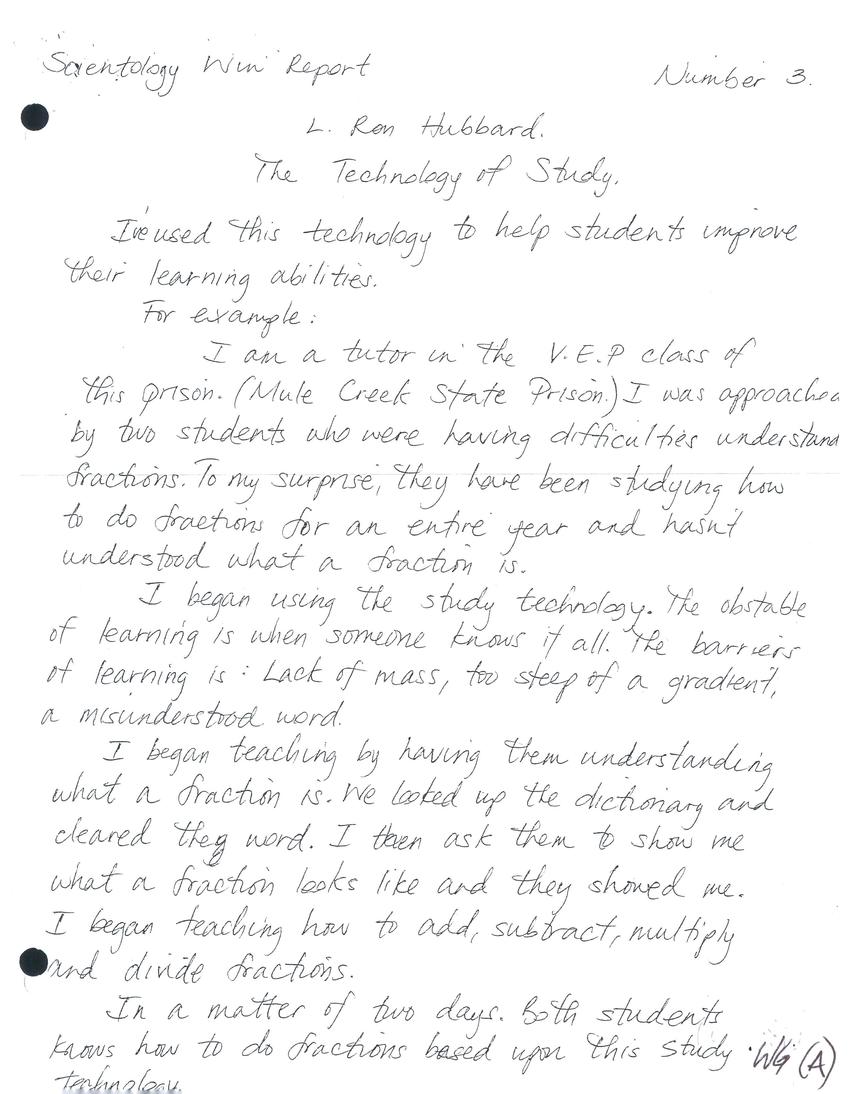 Scientology Win Report Number 3.
L. Ron Hubbard.
The Technology of Study.
I've used this technology to help students improve
their learning abilities.
For example:
I am a tutor in the V.E.P class of
this prison. (Mule Creek State Prison.) I was approached
by two students who were having difficulties understand
fractions. To my surprise, they have been studying how
to do fractions for an entire year and hasn't
understood what a fraction is.
I began using the study technology. The obstable
of learning is when someone knows it all. The barriers
of learning is: Lack of mass, too steep of a gradient,
a misunderstood word.
I began teaching by having them understanding
what a fraction is. We looked up the dictionary and
cleared they word. I then ask them to show me
what a fraction looks like and they showed me.
I began teaching how to add, subtract, multiply
and divide fractions.
In a matter of two days. Both students
knows how to do fractions based upon this study
technology.
(A)